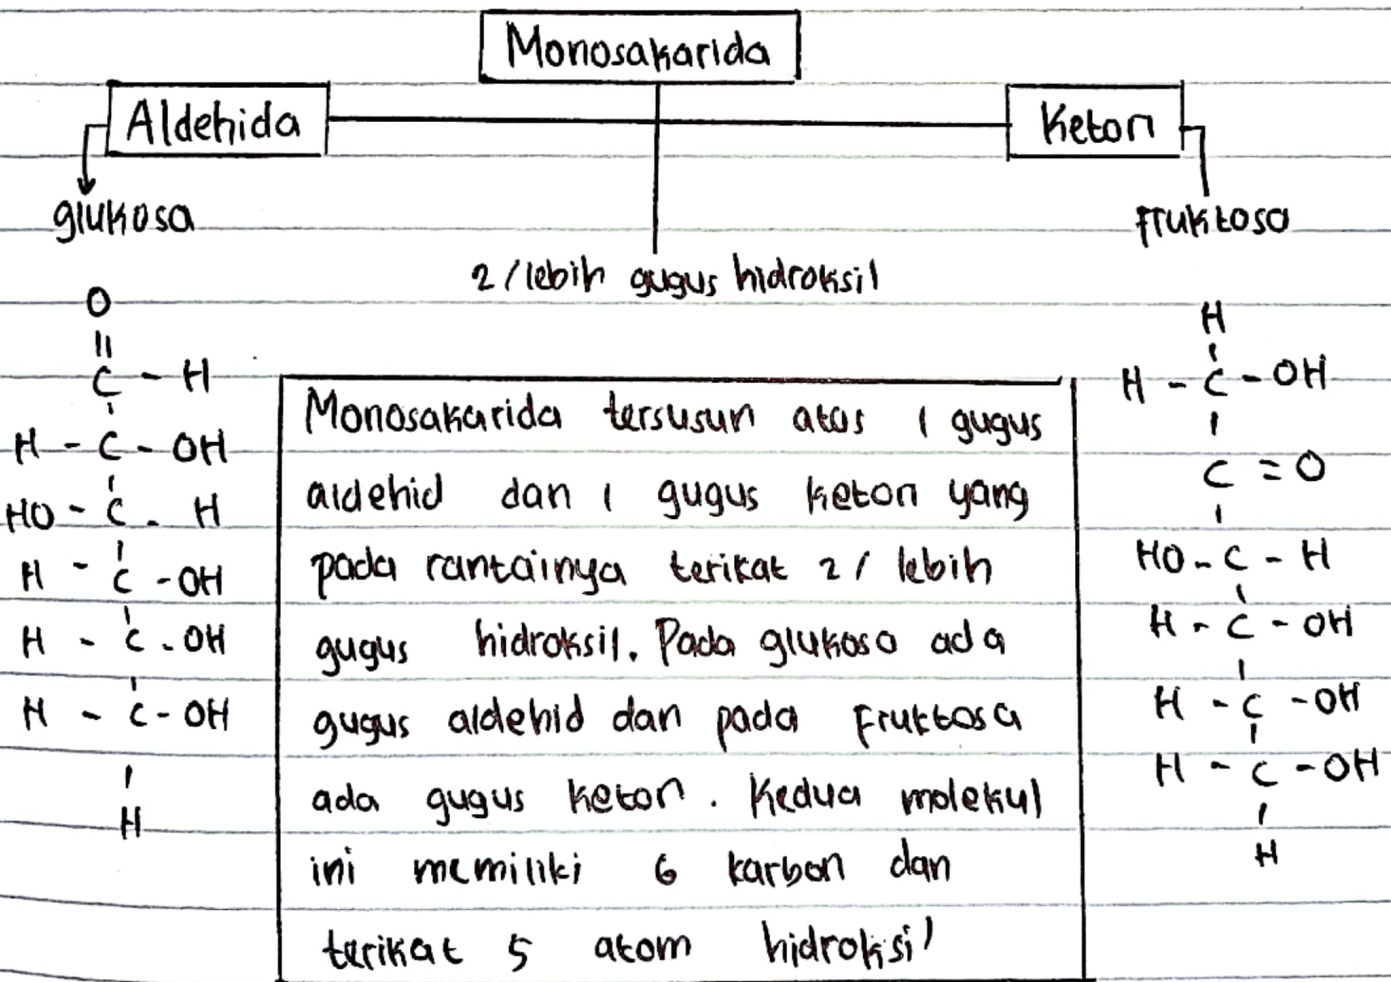 Monosakarida
Aldehida
Keton
glukosa
fruktosa
2 / lebih gugus hidroksil
O
||
C - H
H - C - OH
HO - C - H
H - C - OH
H - C - OH
H - C - OH
H
Monosakarida tersusun atas 1 gugus
aldehid dan 1 gugus keton yang
pada rantainya terikat 2 / lebih
gugus hidroksil. Pada glukosa ada
gugus aldehid dan pada fruktosa
ada gugus keton. Kedua molekul
ini memiliki 6 karbon dan
terikat 5 atom hidroksil
H
H - C - OH
C = O
HO - C - H
H - C - OH
H - C - OH
H - C - OH
H